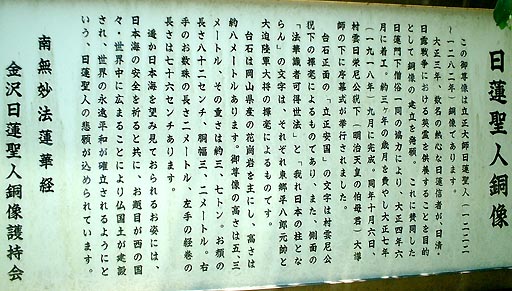 日蓮聖人銅像
この御尊像は立正大師日蓮聖人（一二二二
～一二八二年）銅像であります。
大正三年、数名の熱心な日蓮信者が、日清・
日露戦争における英霊を供養することを目的
として銅像の建立を発願。これに賛同した
日蓮門下僧俗一同の協力により、大正四年六
月に着工。約三ヶ年の歳月を費やし大正七年
（一九一八年）九月に完成。同年十月六日、
村雲日栄尼公猊下（明治天皇の伯母君）大導
師の下に序幕式が挙行されました。
台石正面の「立正安国」の文字は村雲尼公
猊下の揮毫によるものであり、また、側面の
「法華識者可得世法」と「我れ日本の柱とな
らん」の文字は、それぞれ東郷平八郎元帥と
大迫陸軍大将の揮毫によるものです。
台石は岡山県産の花崗岩を主にし、高さは
約八メートルあります。御尊像の高さは五、三
メートル、その重さは約三、七トン。お顔の
長さ八十二センチ、胴幅三、二メートル。右
手のお数珠の長さ二メートル、左手の経巻の
長さは七十六センチあります。
遥か日本海を望み見ておられるお姿には、
日本海の安全を祈ると共に、お題目が西の国
々・世界中に広まることにより仏国土が建設
され、世界の永遠平和が確立されるようにと
いう、日蓮聖人の悲願が込められています。
南無妙法蓮華経
金沢日蓮聖人銅像護持会